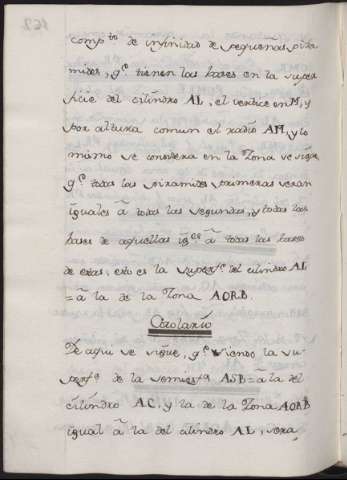 162
comp.tos de infinidad de pequeñas pira
mides, q.e tienen las bases en la super
ficie del cilindro AL, el vertice en M, y
por altura comun el radio AM, y lo
mismo se considera en la Zona se sigue
q.e todas las piramides primeras seran
iguales â todas las segundas, y todas las
bases de aquellas ig.es â todas las bases
de estas, esto es la superf.e del cilindro AL
= â la de la Zona AORB.
Corolario
De aqui se sigue, q.e siendo la su-
perf.e de la semiesf.a ASB = â la del
cilindro AC, y la de la Zona AORB
igual â la del cilindro AL, sera